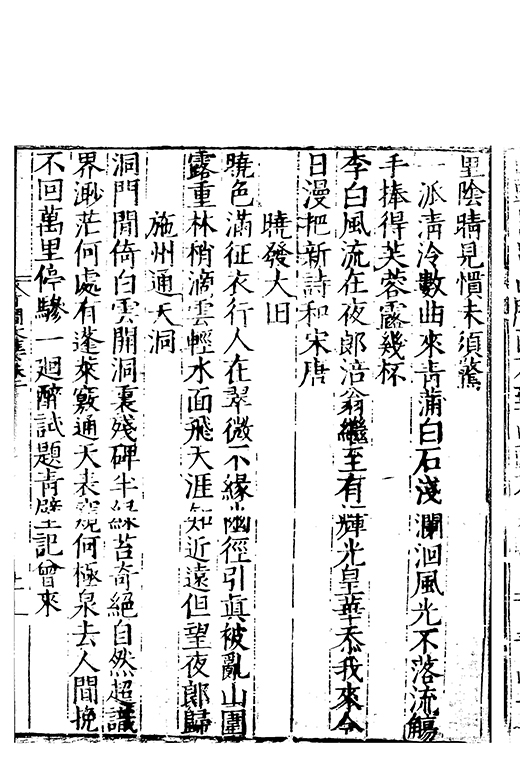 里陰晴見慣未須驚
一派清泠數曲來青蒲白石淺瀾洄風光不落流觴
手捧得芙蓉露幾杯
李白風流在夜郎涪翁繼至有輝光皇華忝我來今
日漫把新詩和宋唐
曉發大旧
曉色滿征衣行人在翠微不緣幽徑引真被亂山圍
露重林梢滴雲輕水面飛天涯知近遠但望夜郎歸
施州通天洞
洞門閒倚白雲開洞裏殘碑半綠苔奇絕自然超識
界渺茫何處有蓬萊竅通天表窺何極泉去人間挽
不回萬里停驂一廻醉試題青壁記曾來